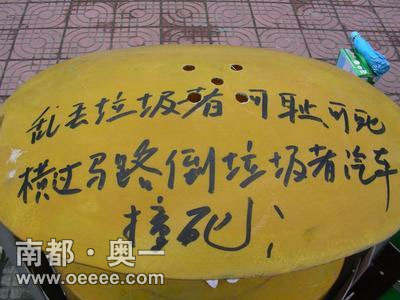 乱丢垃圾者可耻可死
横过马路倒垃圾者汽车
撞死!
南都·奥一
www.oeeee.com